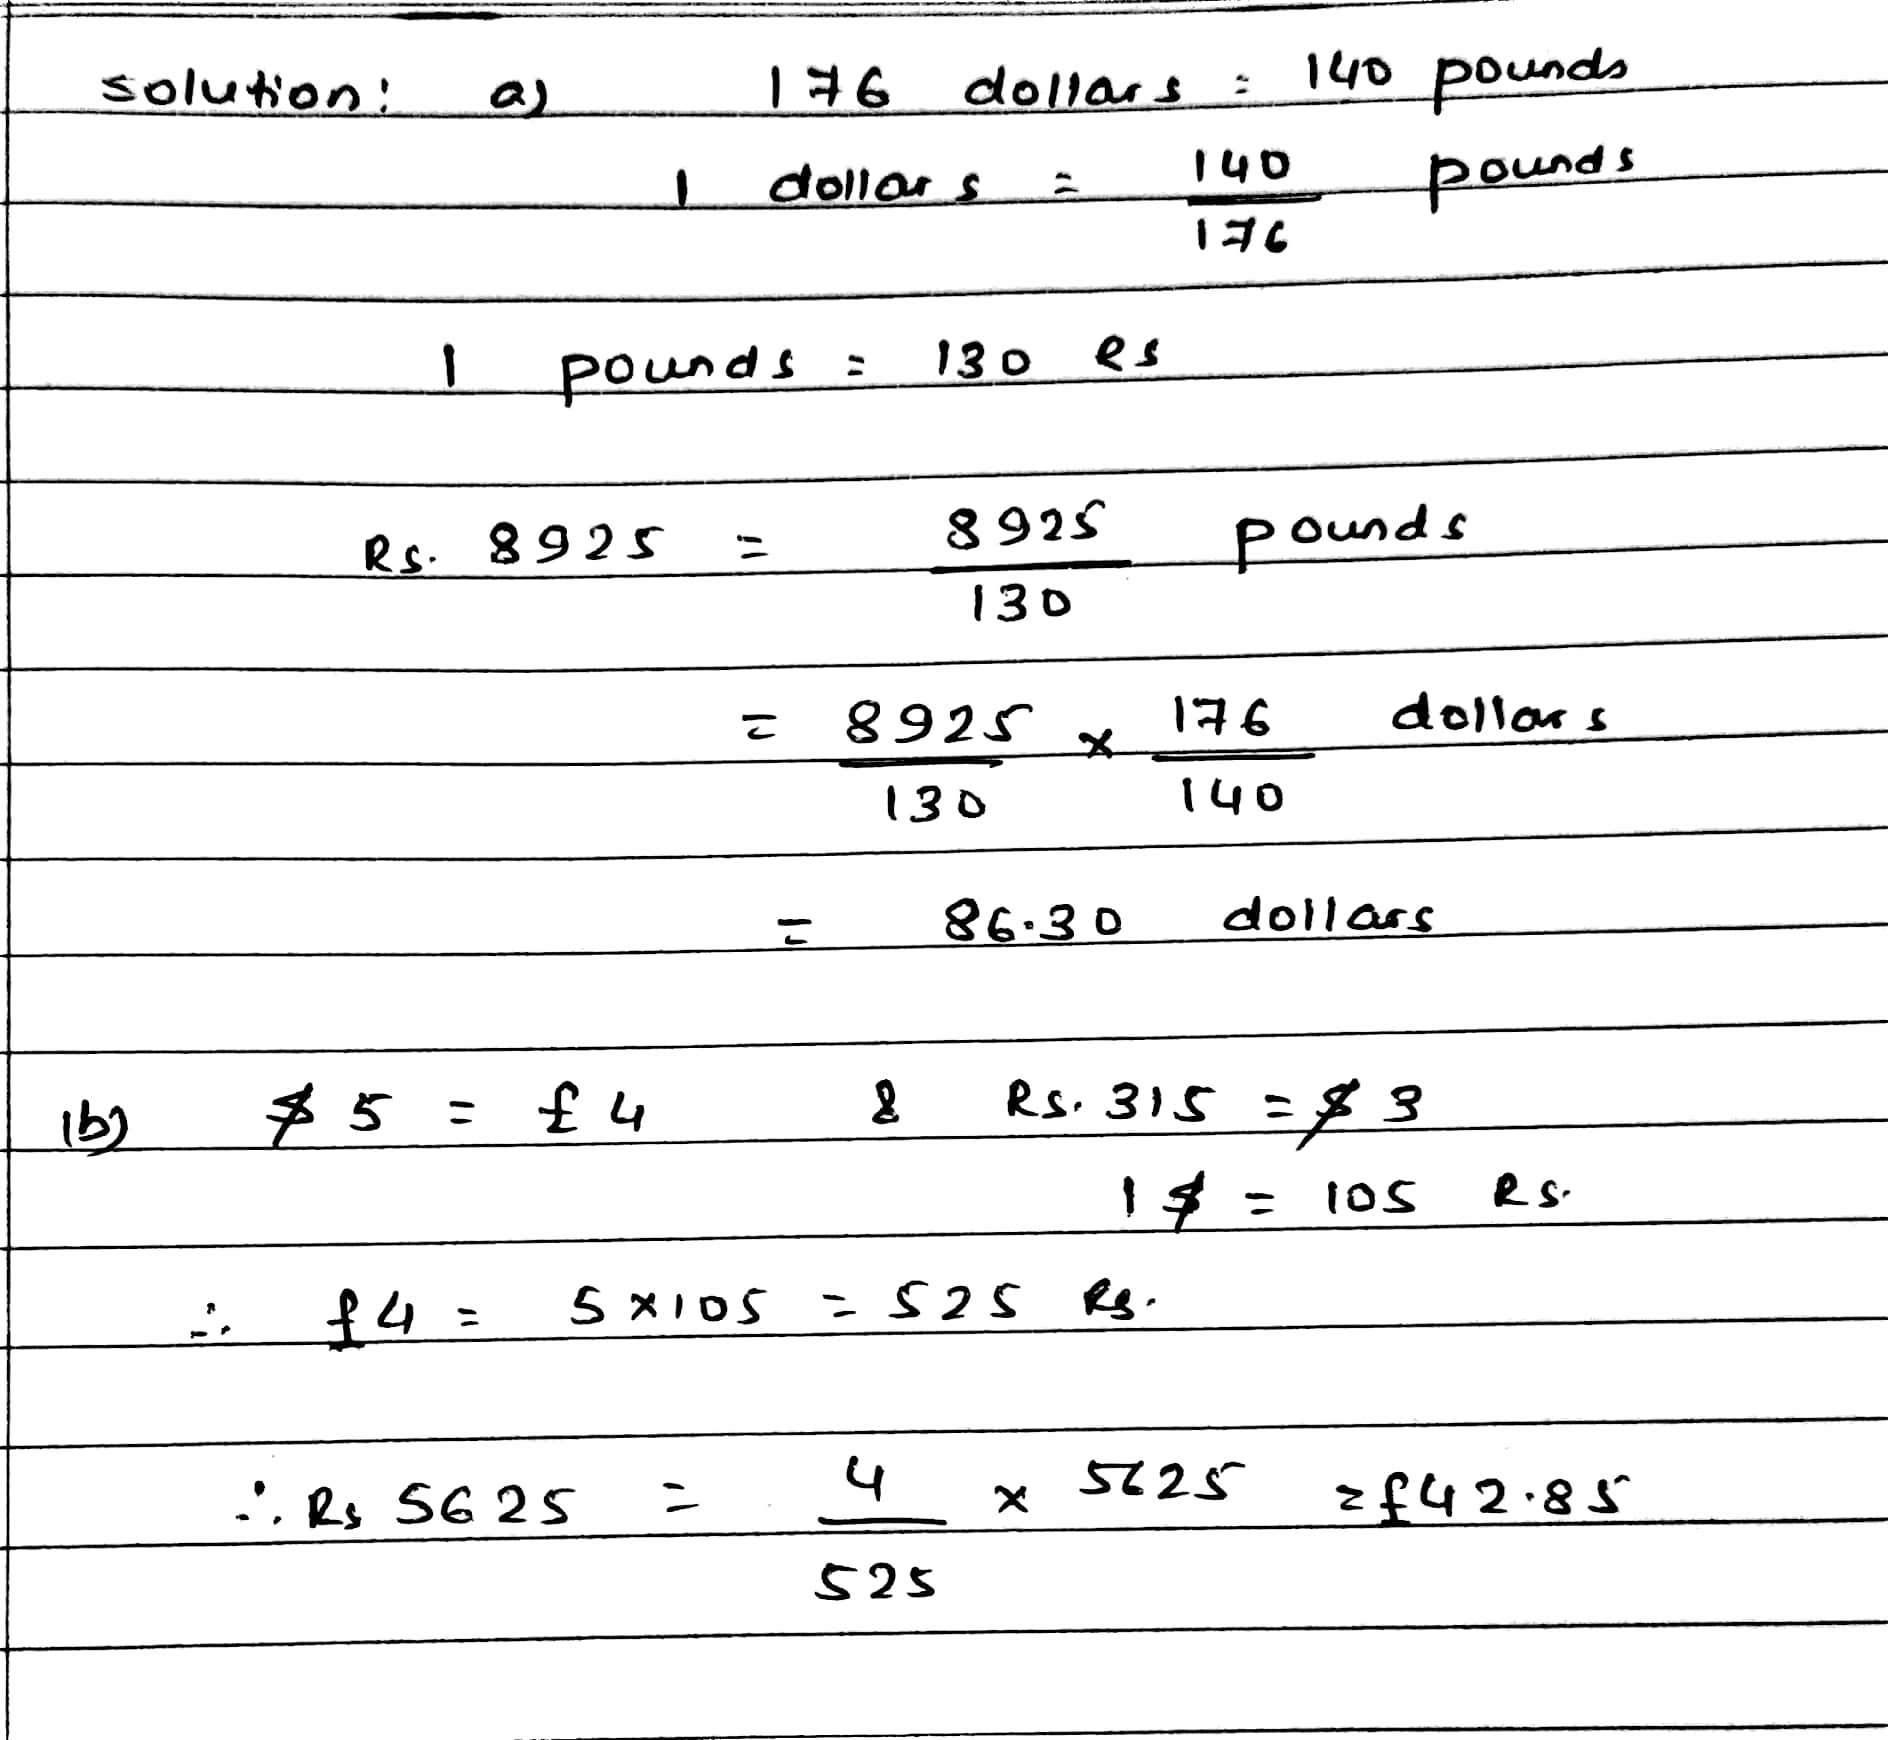 solution: a) 176 dollars = 140 pounds
1 dollars = 140/176 pounds
1 pounds = 130 Rs
Rs. 8925 = 8925/130 pounds
= 8925/130 × 176/140 dollars
= 86.30 dollars
(b) $ 5 = £ 4 & Rs. 315 = $ 3
1 $ = 105 Rs.
∴ £4 = 5 × 105 = 525 Rs.
∴ Rs 5625 = 4/525 × 5625 = £42.85